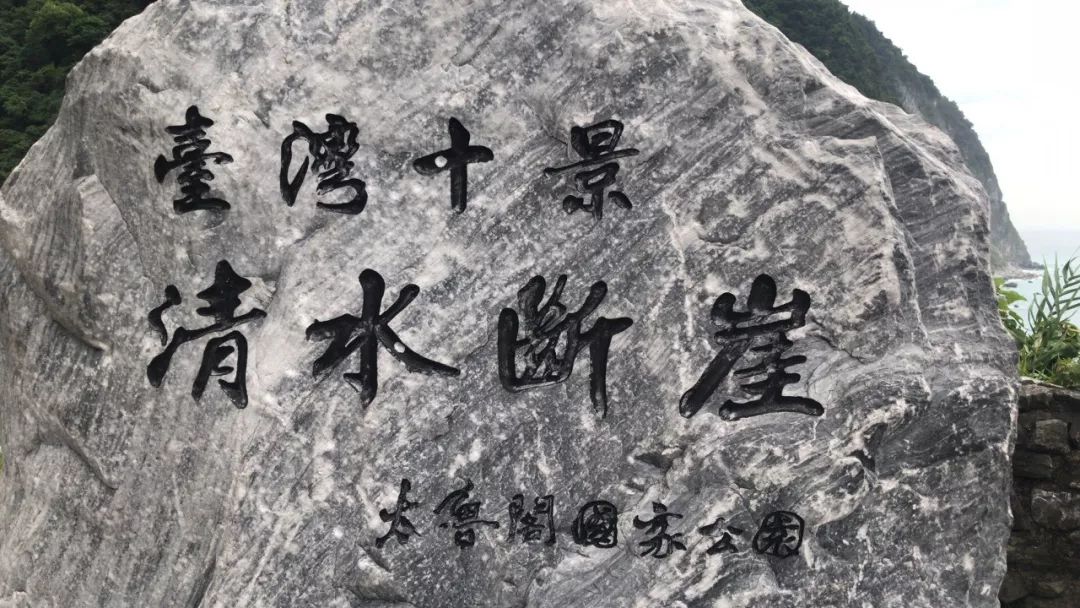 臺灣十景
清水斷崖
太魯閣國家公園